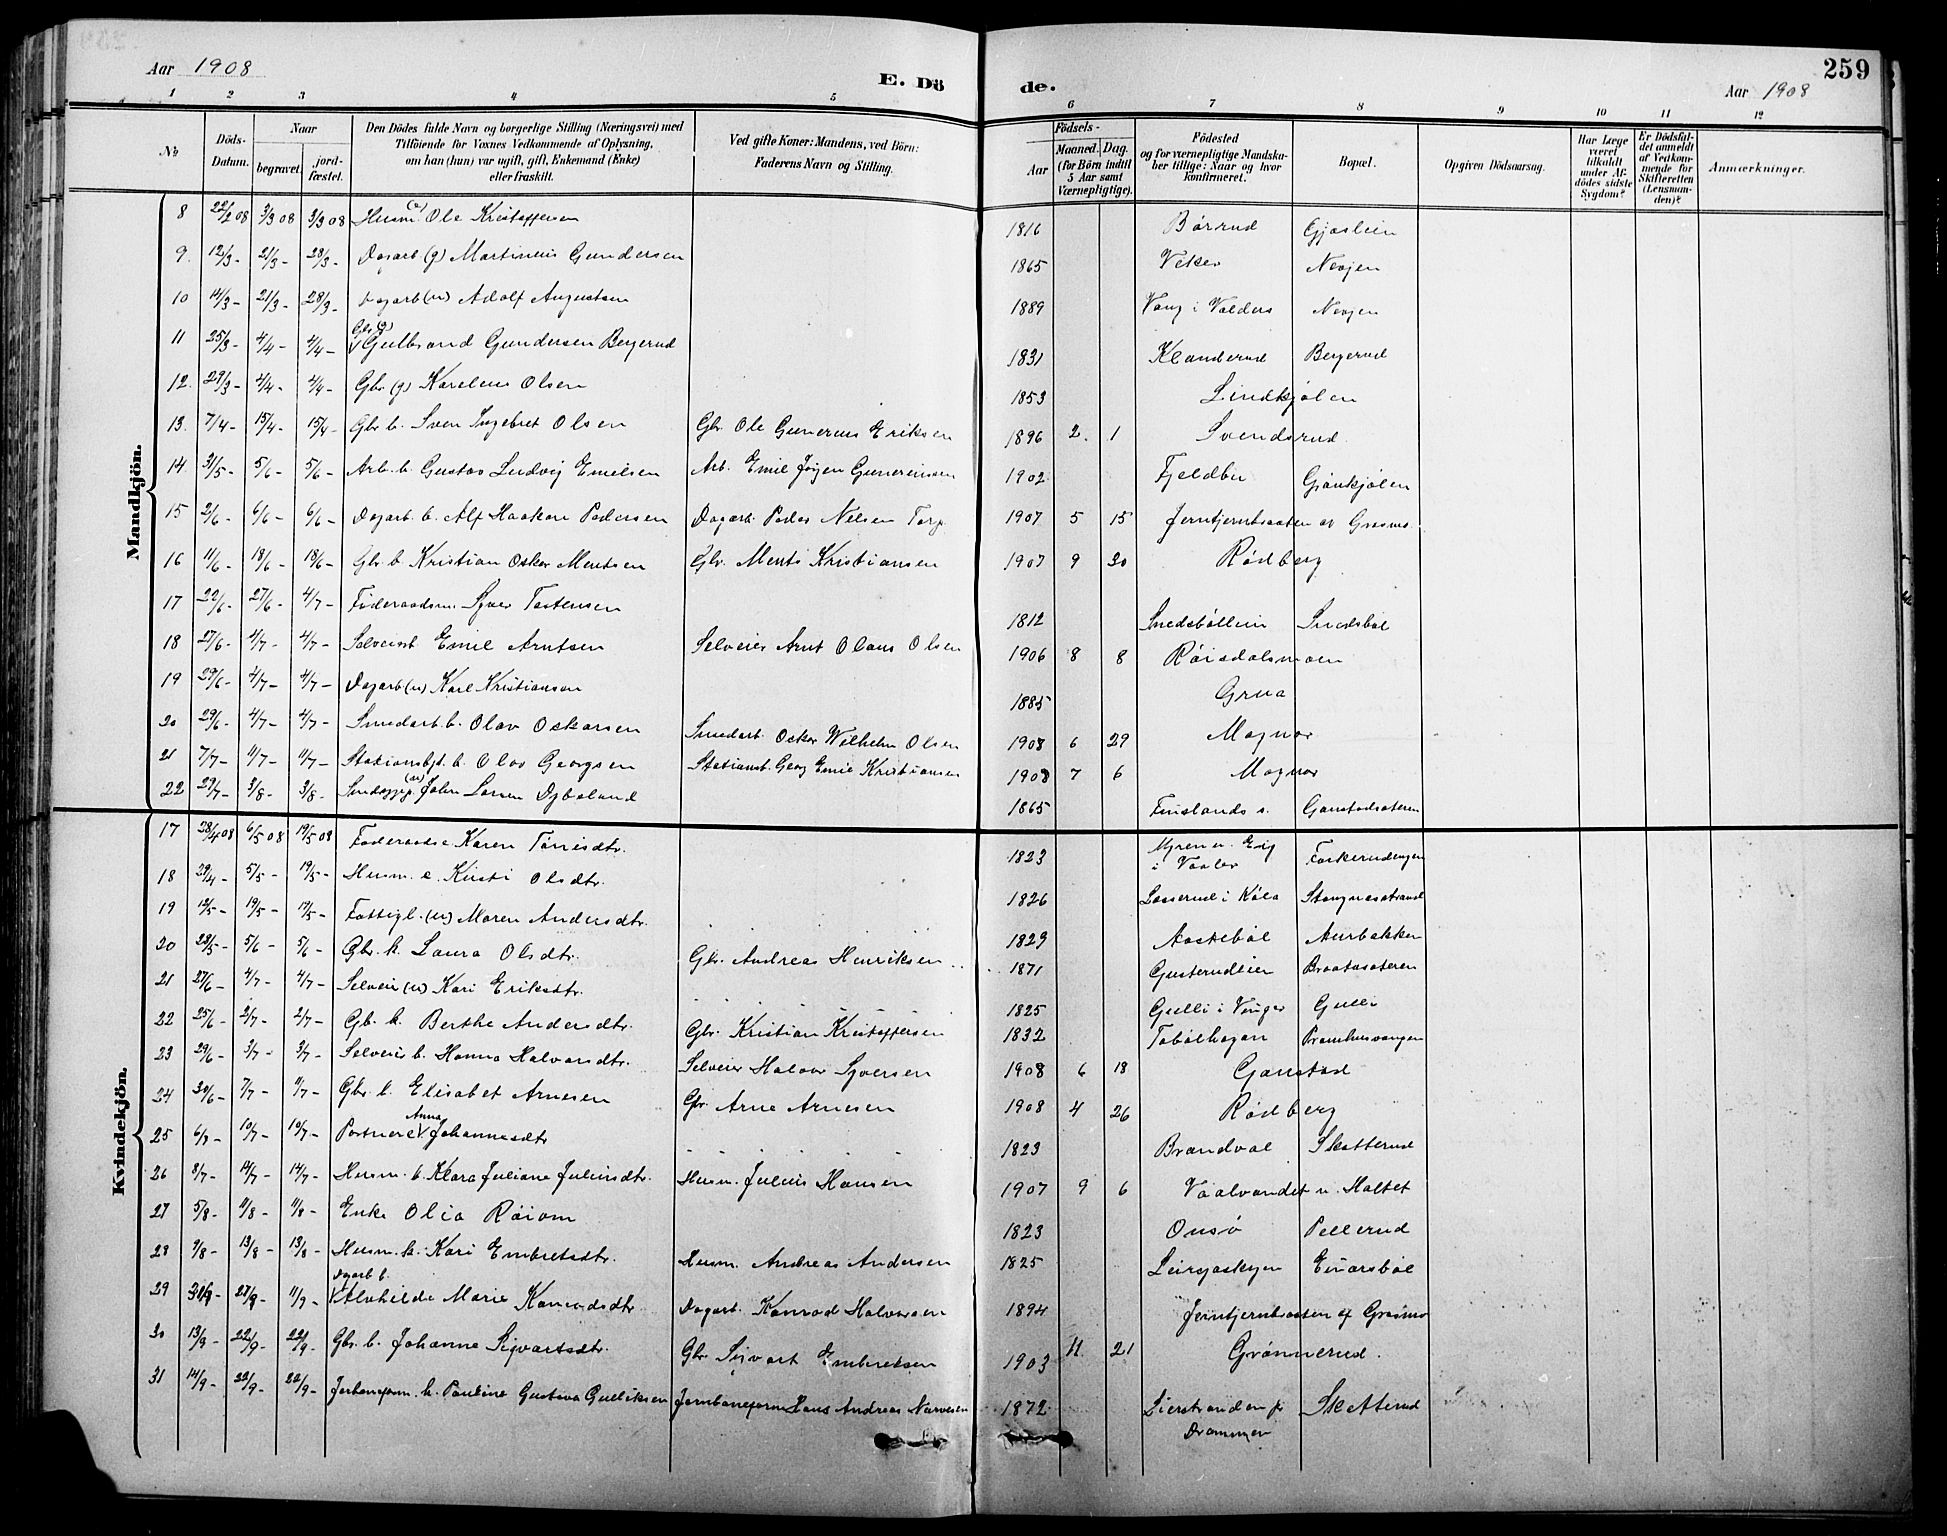 Aar 1908
E. Dö
de.
259
Aar 1908
1 2 3 4 5 6 7 8 9 10 11 12
No
Döds-Datum.
Naar
begravet.
jord-fæstet.
Den Dödes fulde Navn og borgerlige Stilling (Næringsvei) med
Tilföiende for Voxnes Vedkommende af Oplysning,
om han (hun) var ugift, gift, Enkemand (Enke)
eller fraskilt.
Ved gifte Koner: Mandens, ved Börn:
Faderens Navn og Stilling.
Födsels-
Aar
Maaned. Dag.
(for Börn indtil
5 Aar samt
Værnepligtige).
Födested
og for værnepligtige Mandska-
ber tillige: Naar og hvor
konfirmeret.
Bopæl.
Opgiven Dödsaarsag.
Har Læge
været
tilkaldt
under Af-
dödes sidste
Sygdom?
Er Dödsfal-
det anmeldt
af Vedkom-
mende for
Skifteretten
(Lensman-
den)?
Anmærkninger.
Mandkjön.
8 22/2 08 3/3 08 3/3 08 Husm (e) Ole Kristoffersen 1816 Børrud Gjøsleien
9. 12/3 - 21/3 - 28/3 - Dagarb (g) Martinius Gundersen 1865 Veker Nevjen
10 14/3 - 21/3 - 28/3 - Dagarb (u) Adolf Augustsen 1889 Vang i Valders Nevjen
11 25/3 - 4/4 - 4/4 - Gbr (g) Gulbrand Gundersen Bergerud 1831 Klanderud Bergerud
12. 29/3 - 4/4 - 4/4 - Gbr (g) Karelius Olsen 1853 Lindkjølen
13. 7/4 - 15/4 - 15/4 - Gbr. b. Sven Ingebret Olsen Gbr. Ole Gunerius Eriksen 1896 2. 1 Svendsrud
14 31/5 - 5/6 - 5/6 - Arb. b. Gustav Ludvig Emilsen Arb. Emil Jørgen Gunereiusen 1902 Fjeldbu Grønkjølen
15 2/6 - 6/6 - 6/6 - Dagarb. b. Alf Haakon Pedersen Dagarb. Peder Nilsen Torp 1907 5 15 Jerntjernbraaten av Grasmo
16 11/6 - 18/6 - 18/6 - Gbr. b Kristian Oskar Mentsen Gbr. Ments Kristiansen 1907 9 30 Rødberg
17 22/6 - 27/6 - 4/7 - Føderaadsm. Syver Tostensen 1812 Snedsbølleiu Snedsbøl
18 27/6 - 4/7 - 4/7 - Selveierb Emil Arntsen Selveier Arnt Olaus Olsen 1906 8 8 Røisdalsmoen
19 29/6 - 4/7 - 4/7 - Dagarb (u) Karl Kristiansen 1885 Grua
20 29/6 - 4/7 - 4/7 - Smedarb b. Olav Oskarsen Smedarb. Oskar Wilhelm Olsen 1908 6 29 Magnor
21 7/7 - 11/7 - 11/7 - Stationsbtj. b. Olav Georgsen Stationsb. Georg Emil Kristiansen 1908 7 6 Magnor
22 29/7 - 3/8 - 3/8 - (u) John Larsen Dyboland 1865 Finslands s. Ganstadsæteren
Kvindekjön.
17 28/4 08 6/5 08 19/5 08 Føderaadse Karen Tørrisdtr. 1823 Myren u. Eig i Vaaler Forkerudengen
18 29/4 - 5/5 - 19/5 - Husm. e. Kristi Olsdtr. 1826 Lasserud i Køla Stangnesstrand
19 12/5 - 19/5 - 19/5 - Fattigl. (u) Maren Andersdtr. 1829 Aastebøl Aurbakken
20 28/5 - 5/6 - 5/6 - Gbr. k. Laura Olsdtr. Gbr. Andreas Henriksen 1871 Gusterudleien Braatesæteren
21 27/6 - 4/7 - 4/7 - Selveier (u) Kari Eriksdtr. 1825 Gulli i Vinger Gulli
22 25/6 - 2/7 - 2/7 - Gb. k. Berthe Andersdtr. Gbr. Kristian Kristoffersen 1832 Tobølhagan Bramhusvangen
23 29/6 - 3/7 - 3/7 - Selveier b. Hanna Halvorsdtr. Selveier Halvor Syversen 1908 6 18 Ganstad
24 30/6 - 7/7 - 11/7 - Gbr. b. Elisabet Arnesen Gbr. Arne Arnesen 1908 4 26 Rødberg
25 6/7 - 10/7 - 10/7 - Portnere Anna Johannesdtr 1823 Brandval Skotterud
26 8/7 - 14/7 - 14/7 - Husm. b. Klara Juliane Juliusdtr. Husm. Julius Hansen 1907 9 6 Vaalvandet u. Holtet
27 5/8 - 11/8 - 11/8 - Enke Olia Røiom 1823 Onsø Pellerud
28 7/8 - 13/8 - 13/8 - Husm. k. Kari Embretsdtr. Husm. Andreas Andersen 1825 Leirgaskogen Einarsbøl
29 27/9 - 11/9 - Dgarb b. Alvhilde Marie Konradsdtr Dagarb. Konrad Halvorsen 1894 Jerntjernbraaten af Grasmo
30 13/9 - 22/9 - 22/9 - Gbr. b. Johanne Sigvartsdtr. Gbr. Sigvart Embretsen 1903 11. 21 Grønnerud.
31 14/9 - 22/9 - 22/9 - Jerbaneform. k. Pauline Gustava Gulliksen Jernbaneform Hans Andreas Narvesen 1872 Lierstranden pr Drammen Skotterud